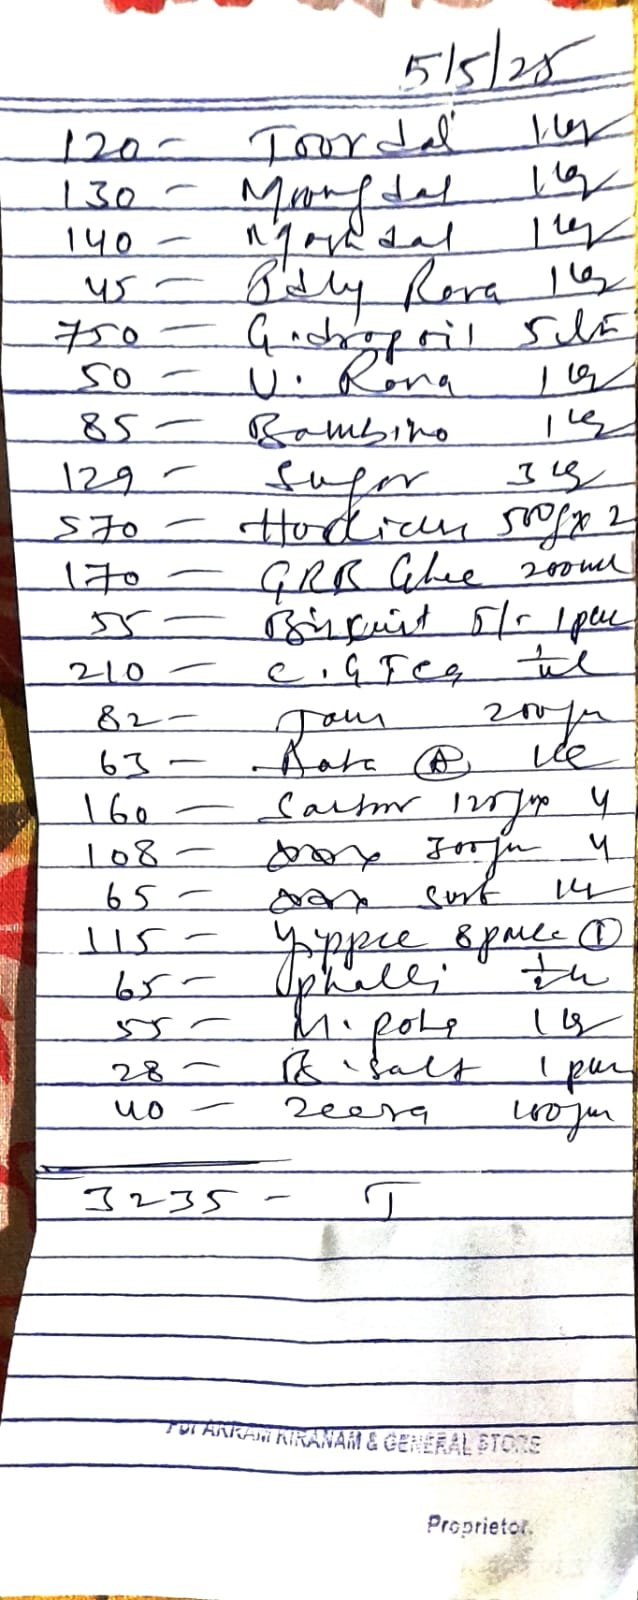 5/5/25
120 - Toor dal 1 kg
130 - Moong dal 1 kg
140 - Mash dal 1 kg
45 - Idly Rava 1 kg
750 - G.drop oil 5 ltr
50 - U. Rava 1 kg
85 - Bambino 1 kg
129 - Sugar 3 kg
570 - Horlicks 500g x 2
170 - GRB Ghee 200ml
55 - Biscuit 5/- 1 pac
210 - C.G Tea
82 - 200gm
63 - Aata (A)
160 - 125gm x 4
108 - xxx 300gm 4
65 - xxx Surf 1 k
115 - Yippee 8 pace (1)
65 - phalli 1/2 k
55 - M. poha 1 kg
28 - R. salt 1 pac
40 - Zeera 100gm
3235 - T
For AKRAM KIRANAM & GENERAL STORE
Proprietor.